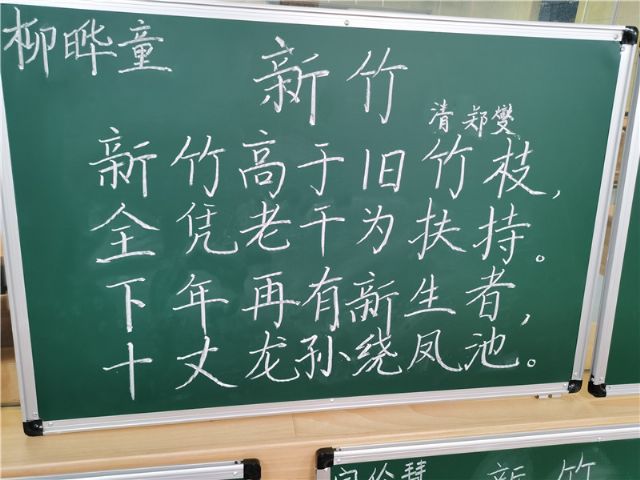 柳晔童
新竹
清 郑燮
新竹高于旧竹枝，
全凭老干为扶持。
下年再有新生者，
十丈龙孙绕凤池。
新竹